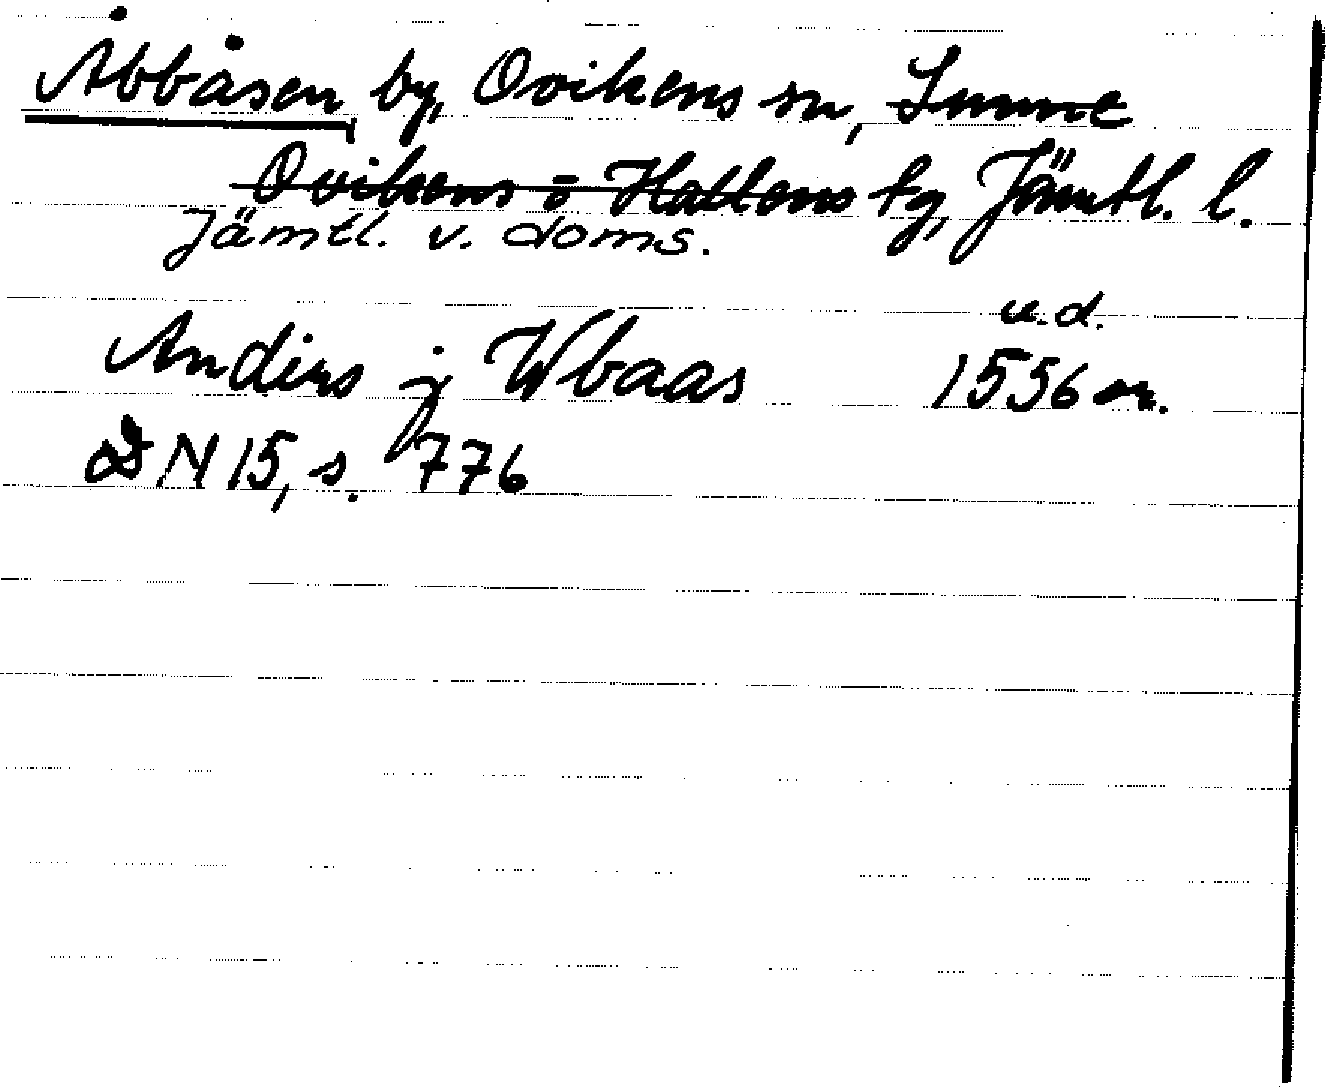 Åbbåsen by, Ovikens sn, Sunne
Ovikens o Hallens tg, Jämtl. l.
Jämtl. v. doms.
u.d.
Anders j Wbaas 1556 or.
DN 15, s. 776